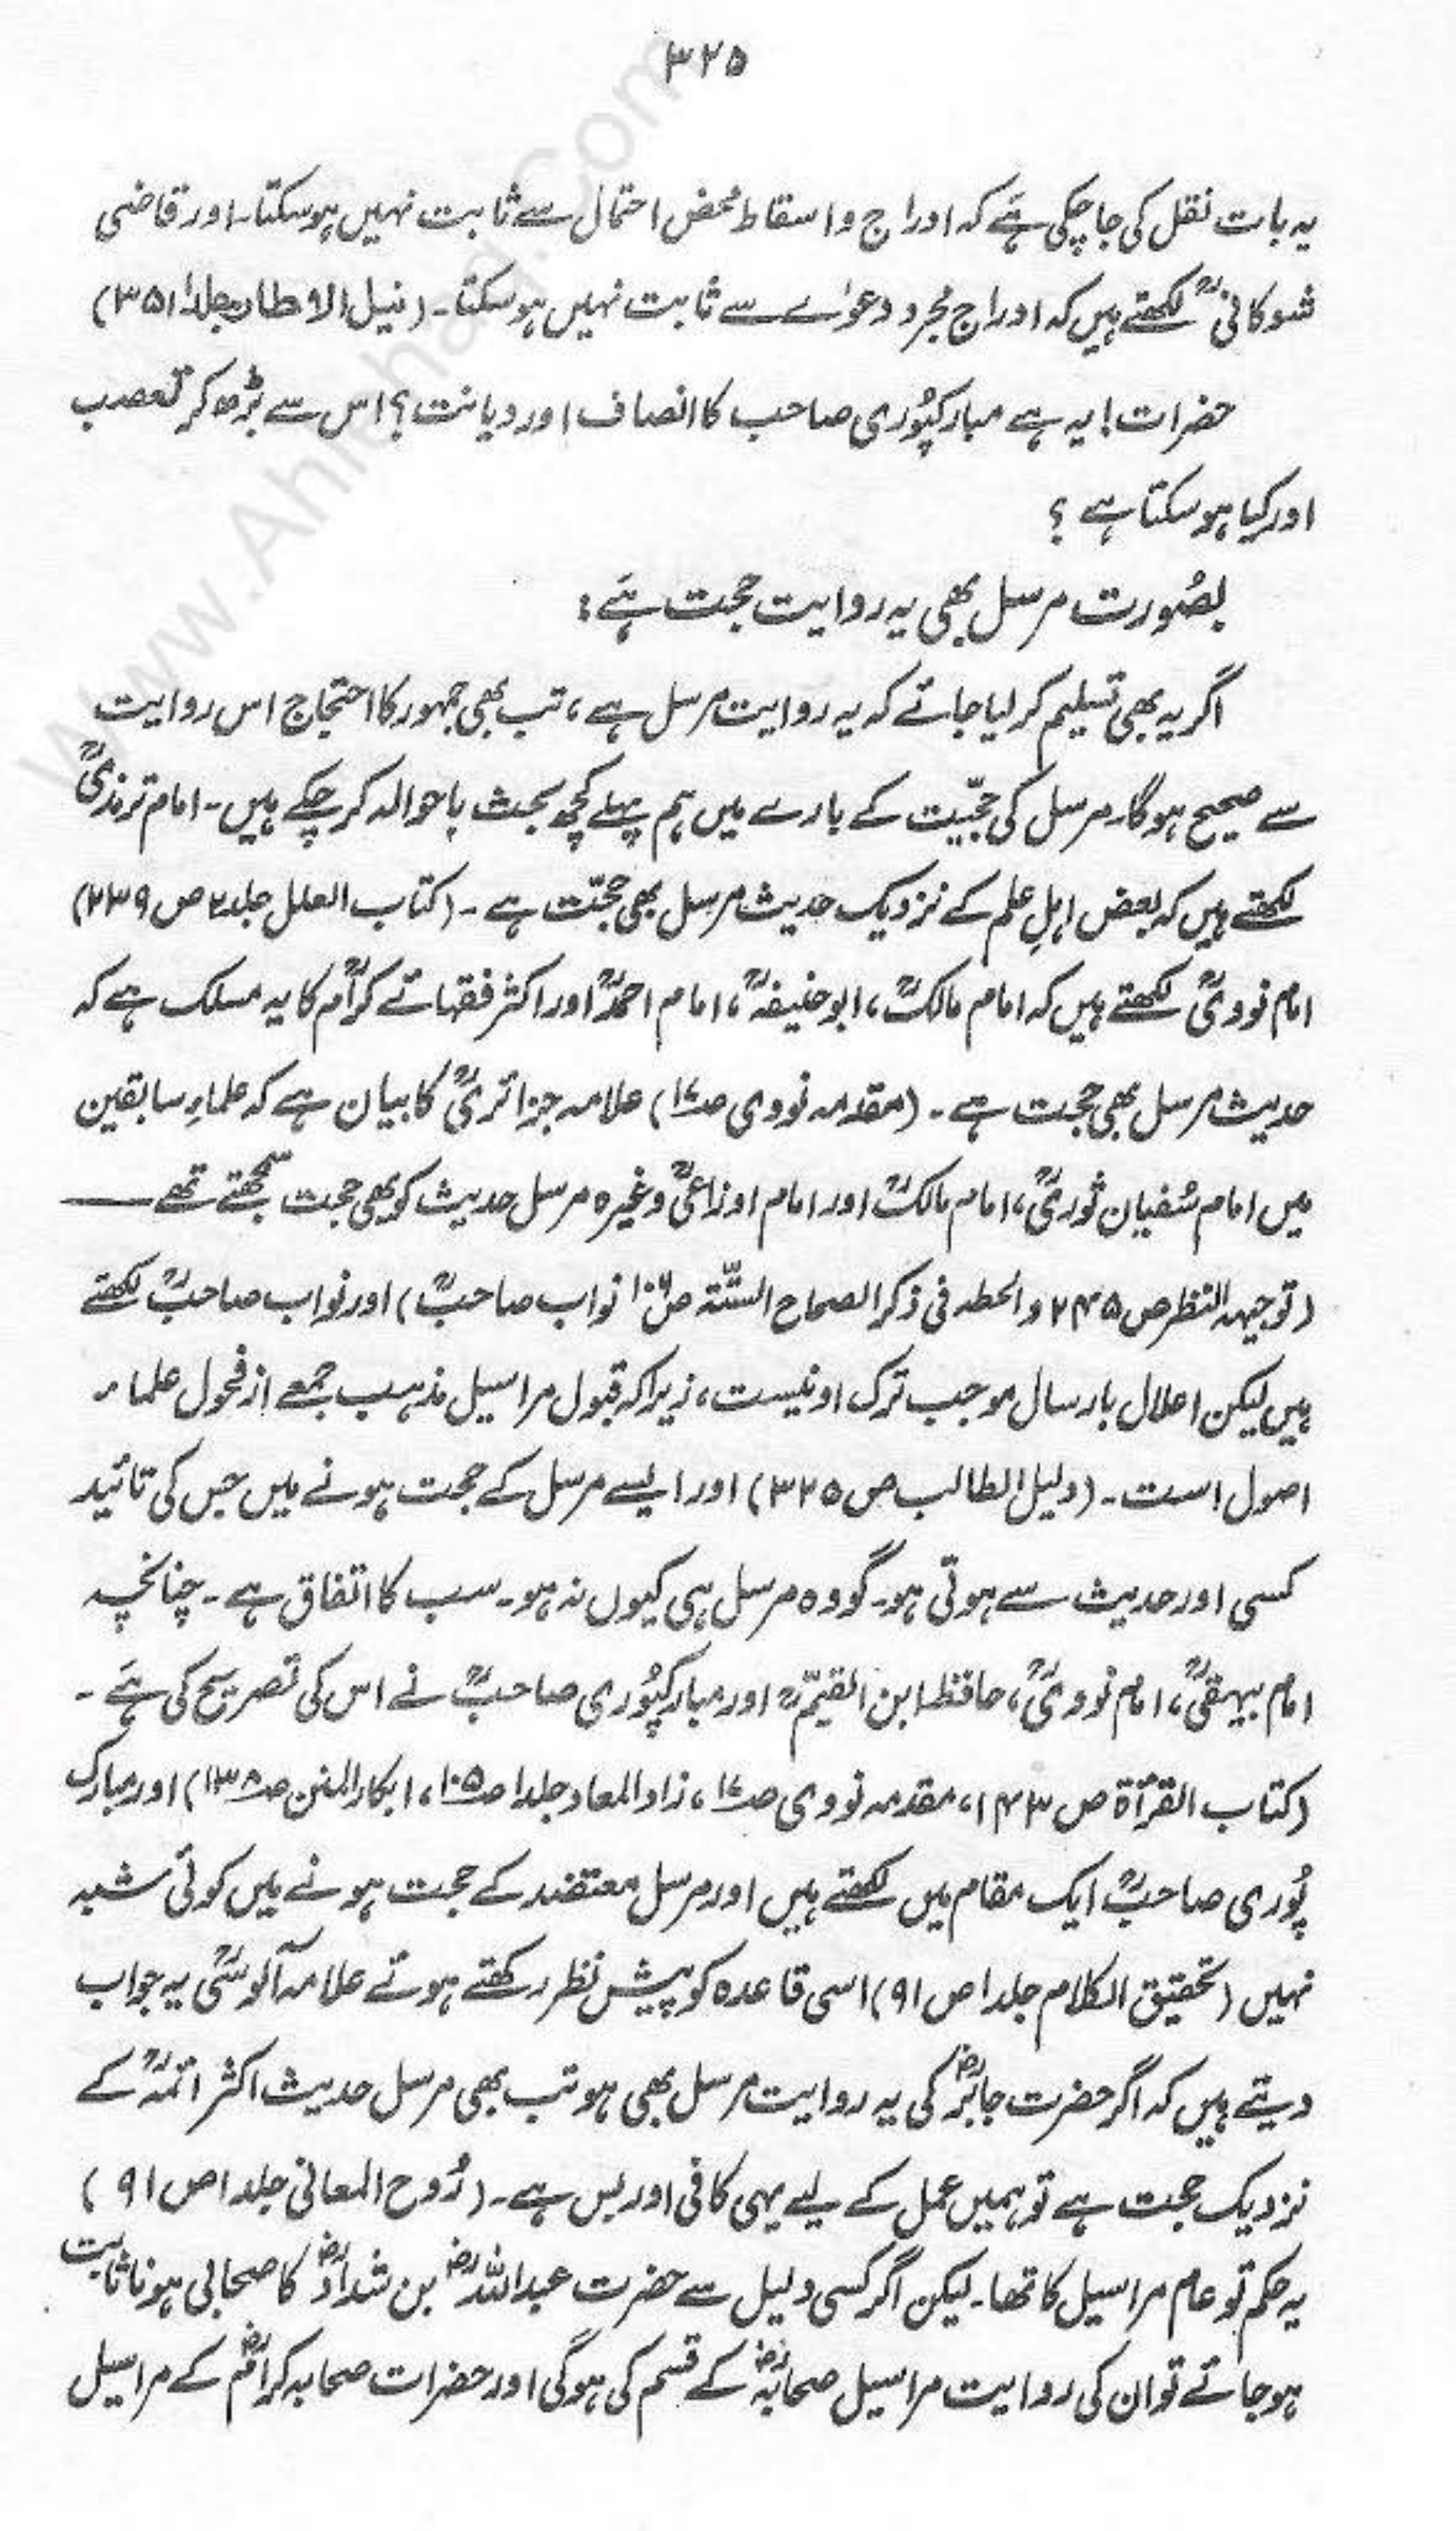 ۳۲۵
یہ بات نقل کی جا چکی ہے کہ ادراج و اسقاط محض احتمال سے ثابت نہیں ہوسکتا۔ اور قاضی
شوکانیؒ لکھتے ہیں کہ ادراج مجرد دعوٰے سے ثابت نہیں ہوسکتا۔ (نیل الاوطار جلد۱ ۳۵۱)
حضرات! یہ ہے مبارکپُوری صاحب کا انصاف اور دیانت؟ اس سے بڑھ کر تعصب
اور کیا ہوسکتا ہے ؟
بصُورت مرسل بھی یہ روایت حجت ہے:
اگر یہ بھی تسلیم کر لیا جائے کہ یہ روایت مرسل ہے، تب بھی جمہور کا احتجاج اس روایت
سے صحیح ہوگا۔ مرسل کی حجّیت کے بارے میں ہم پہلے کچھ بحث باحوالہ کر چکے ہیں۔ امام ترمذیؒ
لکھتے ہیں کہ بعض اہلِ علم کے نزدیک حدیث مرسل بھی حجّت ہے۔ (کتاب العلل جلد۲ ص ۲۳۹)
امام نوویؒ لکھتے ہیں کہ امام مالکؒ، ابوحنیفہؒ، امام احمدؒ اور اکثر فقہائے کرامؒ کا یہ مسلک ہے کہ
حدیث مرسل بھی حجت ہے۔ (مقدمہ نووی ص۱۷) علامہ جزائریؒ کا بیان ہے کہ علماءِ سابقین
میں امام سُفیان ثوریؒ، امام مالکؒ اور امام اوزاعیؒ وغیرہ مرسل حدیث کو بھی حجت سمجھتے تھے ——
(توجیہہ النظر ص ۲۴۵ والحطہ فی ذکر الصحاح الستّۃ ص۱۰۶ نواب صاحبؒ) اور نواب صاحبؒ لکھتے
ہیں لیکن اعلال بارسال موجب ترک او نیست، زیراکہ قبول مراسیل مذہب جمعے از فحول علماء
اصول است۔ (دلیل الطالب ص ۳۲۵) اور ایسے مرسل کے حجت ہونے میں جس کی تائید
کسی اور حدیث سے ہوتی ہو۔ گو وہ مرسل ہی کیوں نہ ہو۔ سب کا اتفاق ہے۔ چنانچہ
امام بیہقیؒ، امام نوویؒ، حافظ ابن القیّمؒ اور مبارکپُوری صاحبؒ نے اس کی تصریح کی ہَے۔
(کتاب القرأۃ ص ۱۴۳، مقدمہ نووی ص۱۷، زاد المعاد جلد۱ ص۱۰۵، ابکار المنن ص۱۳۸) اور مبارک
پُوری صاحبؒ ایک مقام میں لکھتے ہیں اور مرسل معتضد کے حجت ہونے میں کوئی شبہ
نہیں (تحقیق الکلام جلد۱ ص ۹۱) اسی قاعدہ کو پیش نظر رکھتے ہوئے علامہ آلوسیؒ یہ جواب
دیتے ہیں کہ اگر حضرت جابرؓ کی یہ روایت مرسل بھی ہو تب بھی مرسل حدیث اکثر ائمہؒ کے
نزدیک حجت ہے تو ہمیں عمل کے لیے یہی کافی اور بس ہے۔ (رُوح المعانی جلد۱ ص ۹۱)
یہ حکم تو عام مراسیل کا تھا۔ لیکن اگر کسی دلیل سے حضرت عبداللہؓ بن شدادؓ کا صحابی ہونا ثابت
ہو جائے تو ان کی روایت مراسیل صحابہؓ کے قسم کی ہوگی اور حضرات صحابہ کرامؓ کے مراسیل